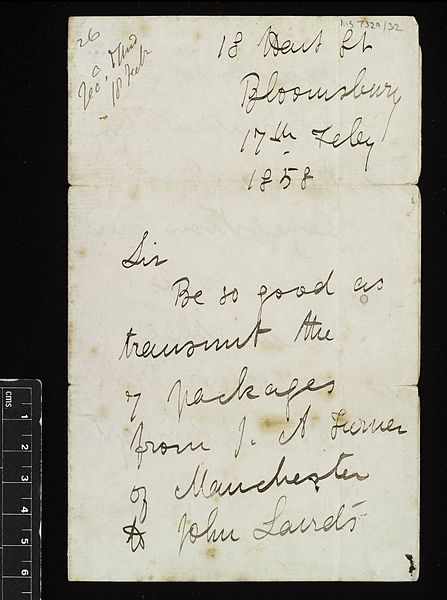 MS 7329/32
26
Rec.d & And
18 Feb
18 Hart St
Bloomsbury
17th Feby
1858
Sir
Be so good as
transmit the
7 packages
from J. A Turner
of Manchester
to John Laird's
cms
1
2
3
4
5
6